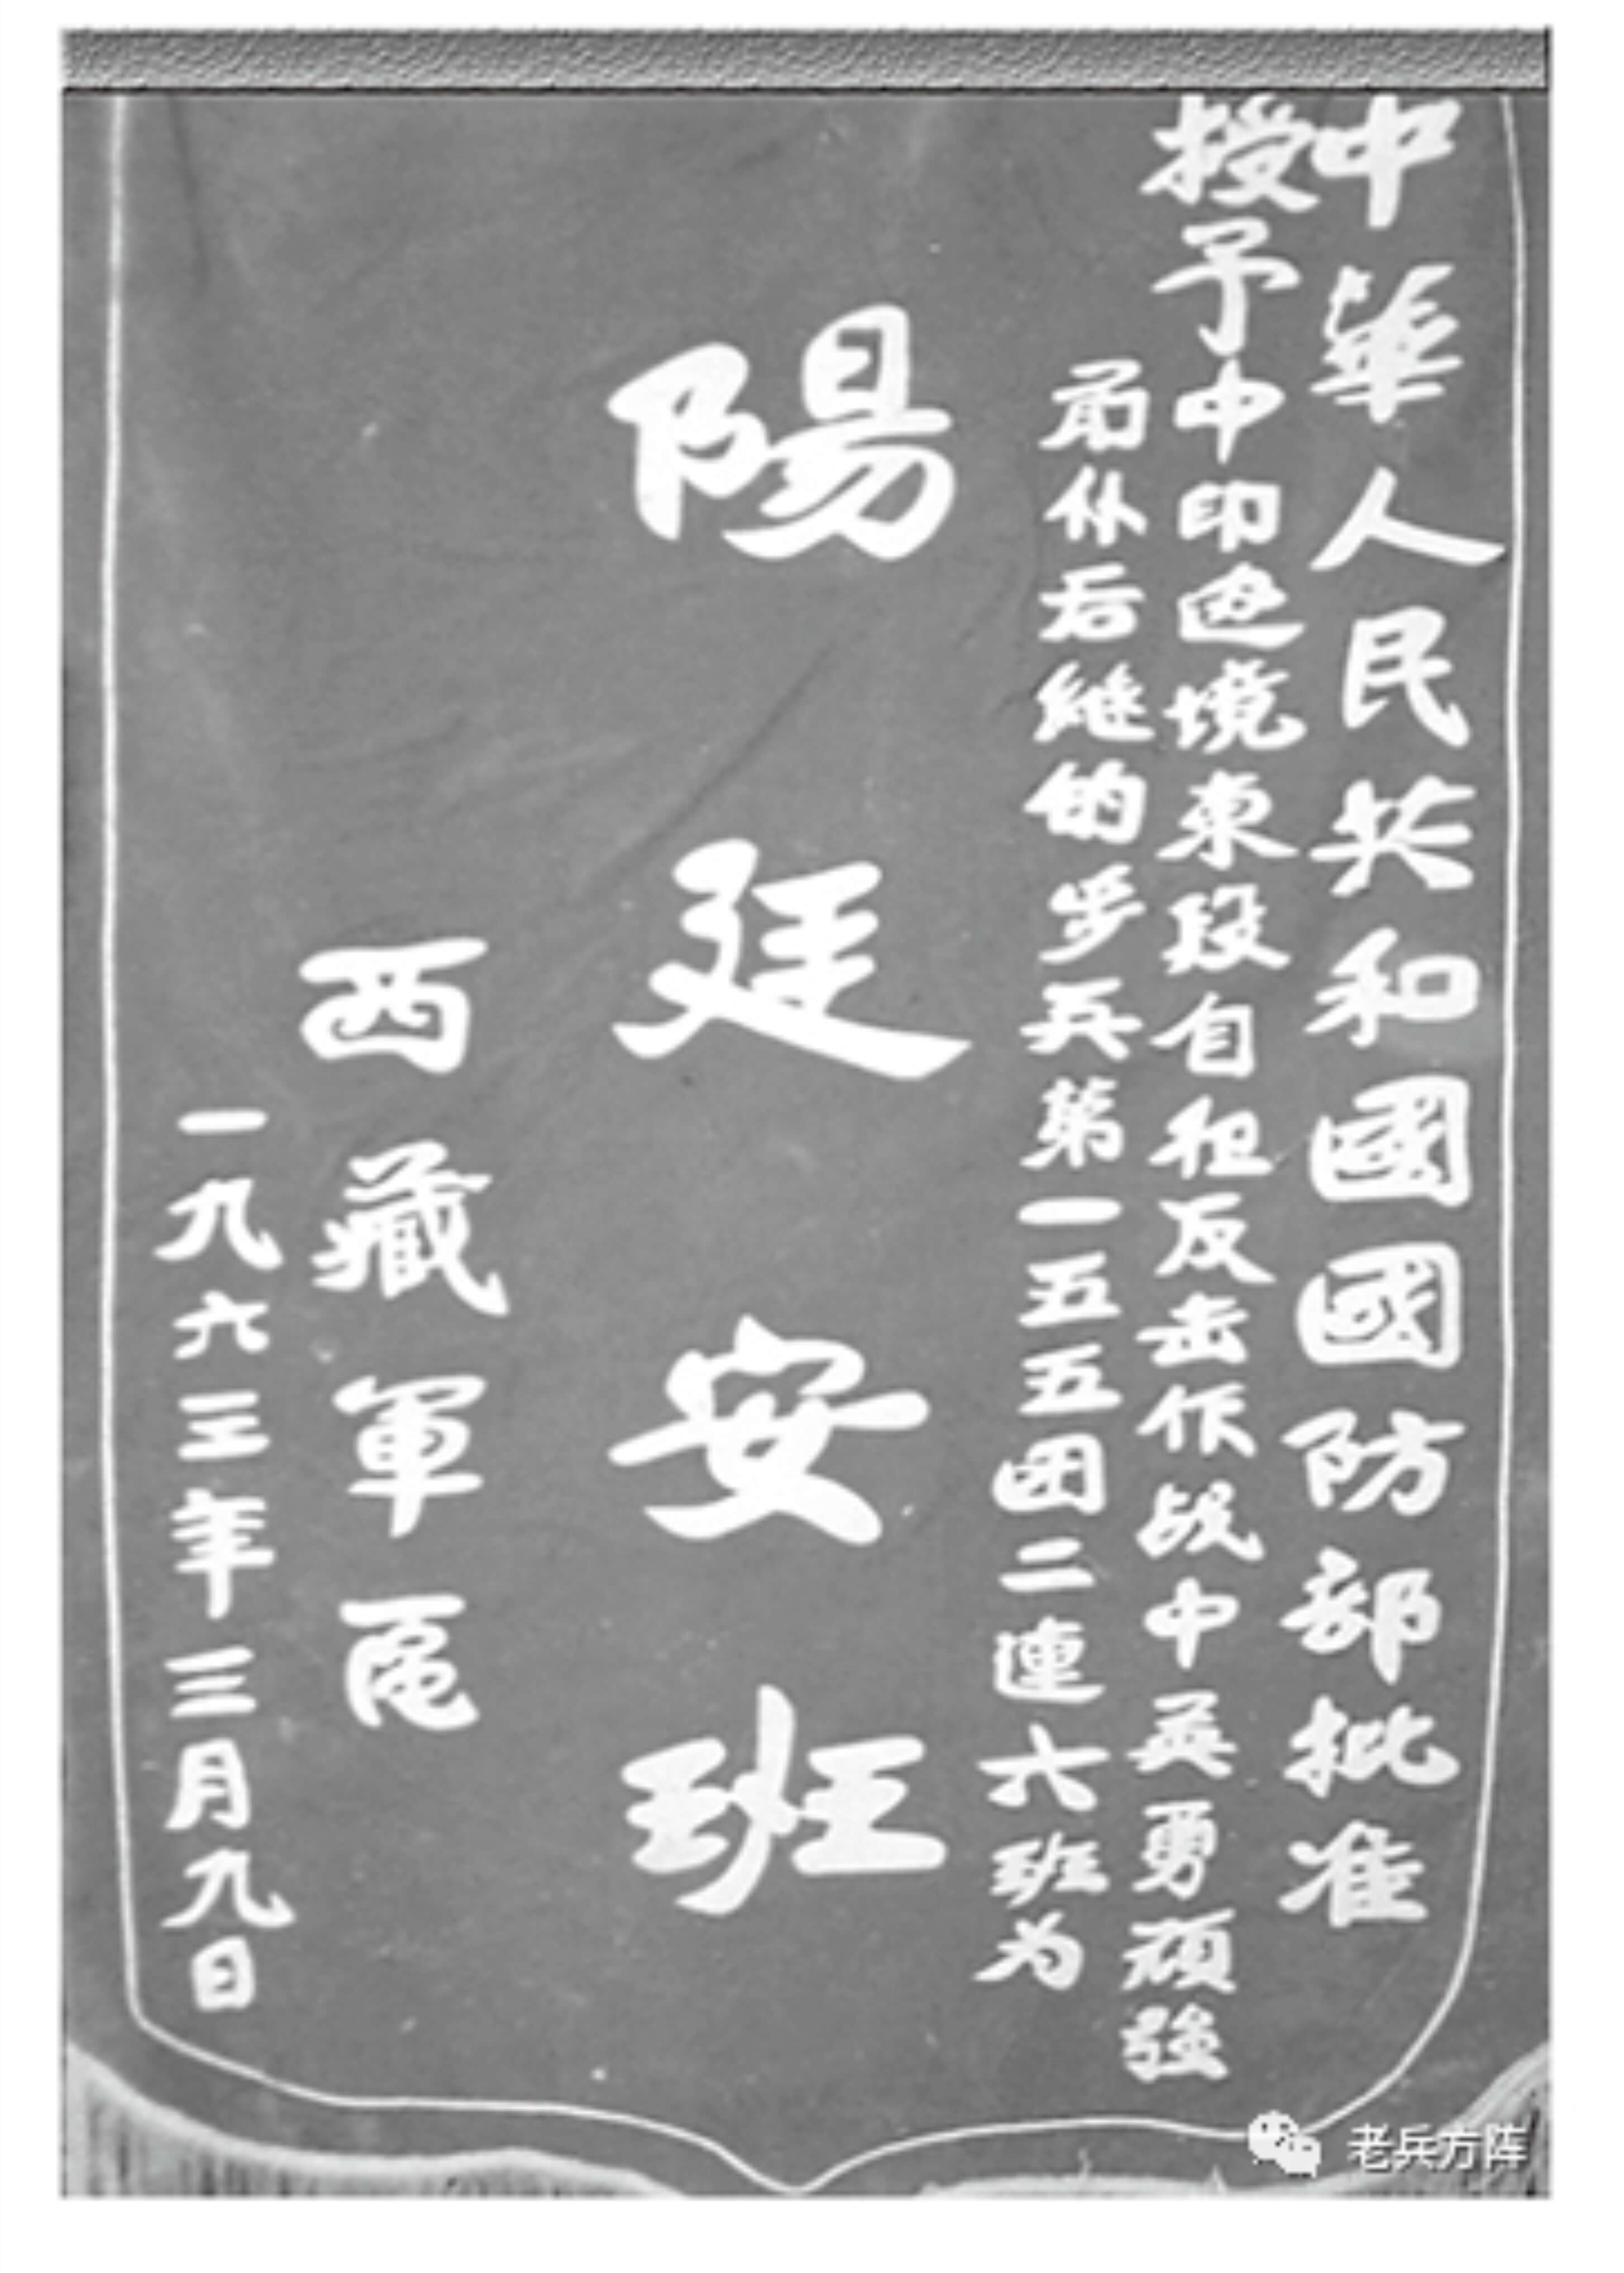 中華人民共和國國防部批准
授予中印边境東段自衛反击作战中英勇頑强
前仆后继的步兵第一五五团二連六班为
陽廷安班
西藏軍區
一九六三年三月九日
老兵方阵